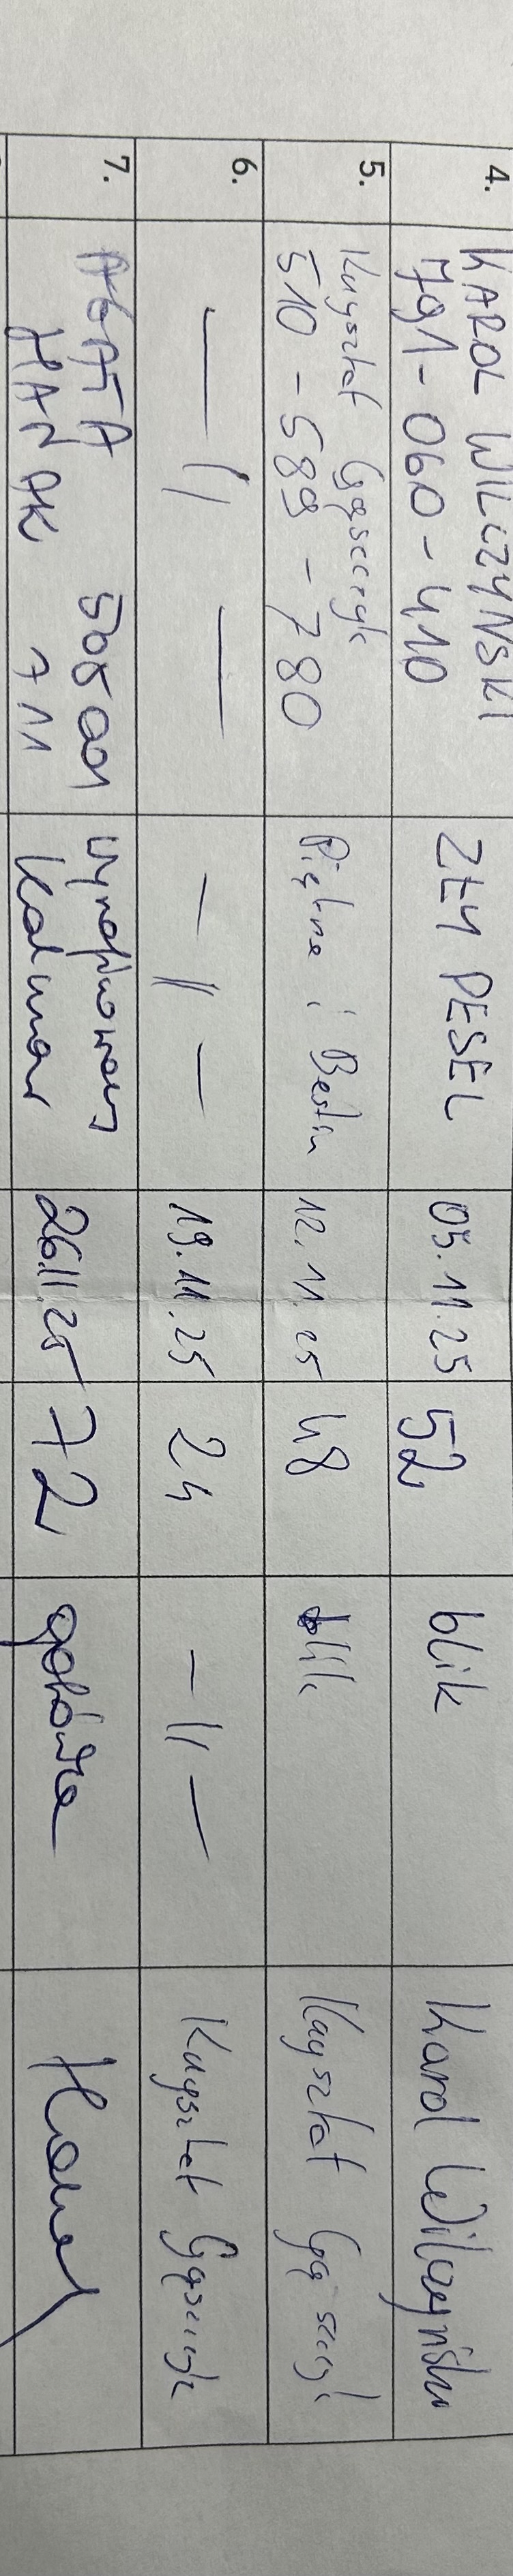 4. KAROL WILCZYŃSKI
791-060-410
ZŁY PESEL
05.11.25
52
blik
Karol Wilczyński
5. Krzysztof Gąszczyk
510-589-780
Piękna i Bestia
12.11.25
48
blik
Krzysztof Gąszczyk
6. — 〃 —
— 〃 —
19.11.25
24
— 〃 —
Krzysztof Gąszczyk
7. AGATA
HANAK
505 001
711
Kalmar
26.11.25
72
gotówka